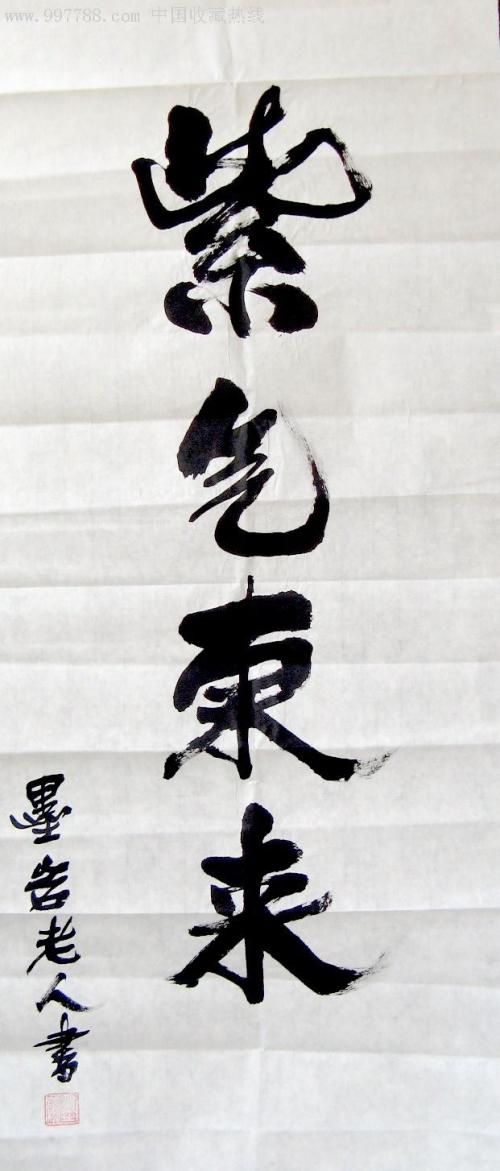 www.997788.com 中国收藏热线
紫气东来
墨岩老人書